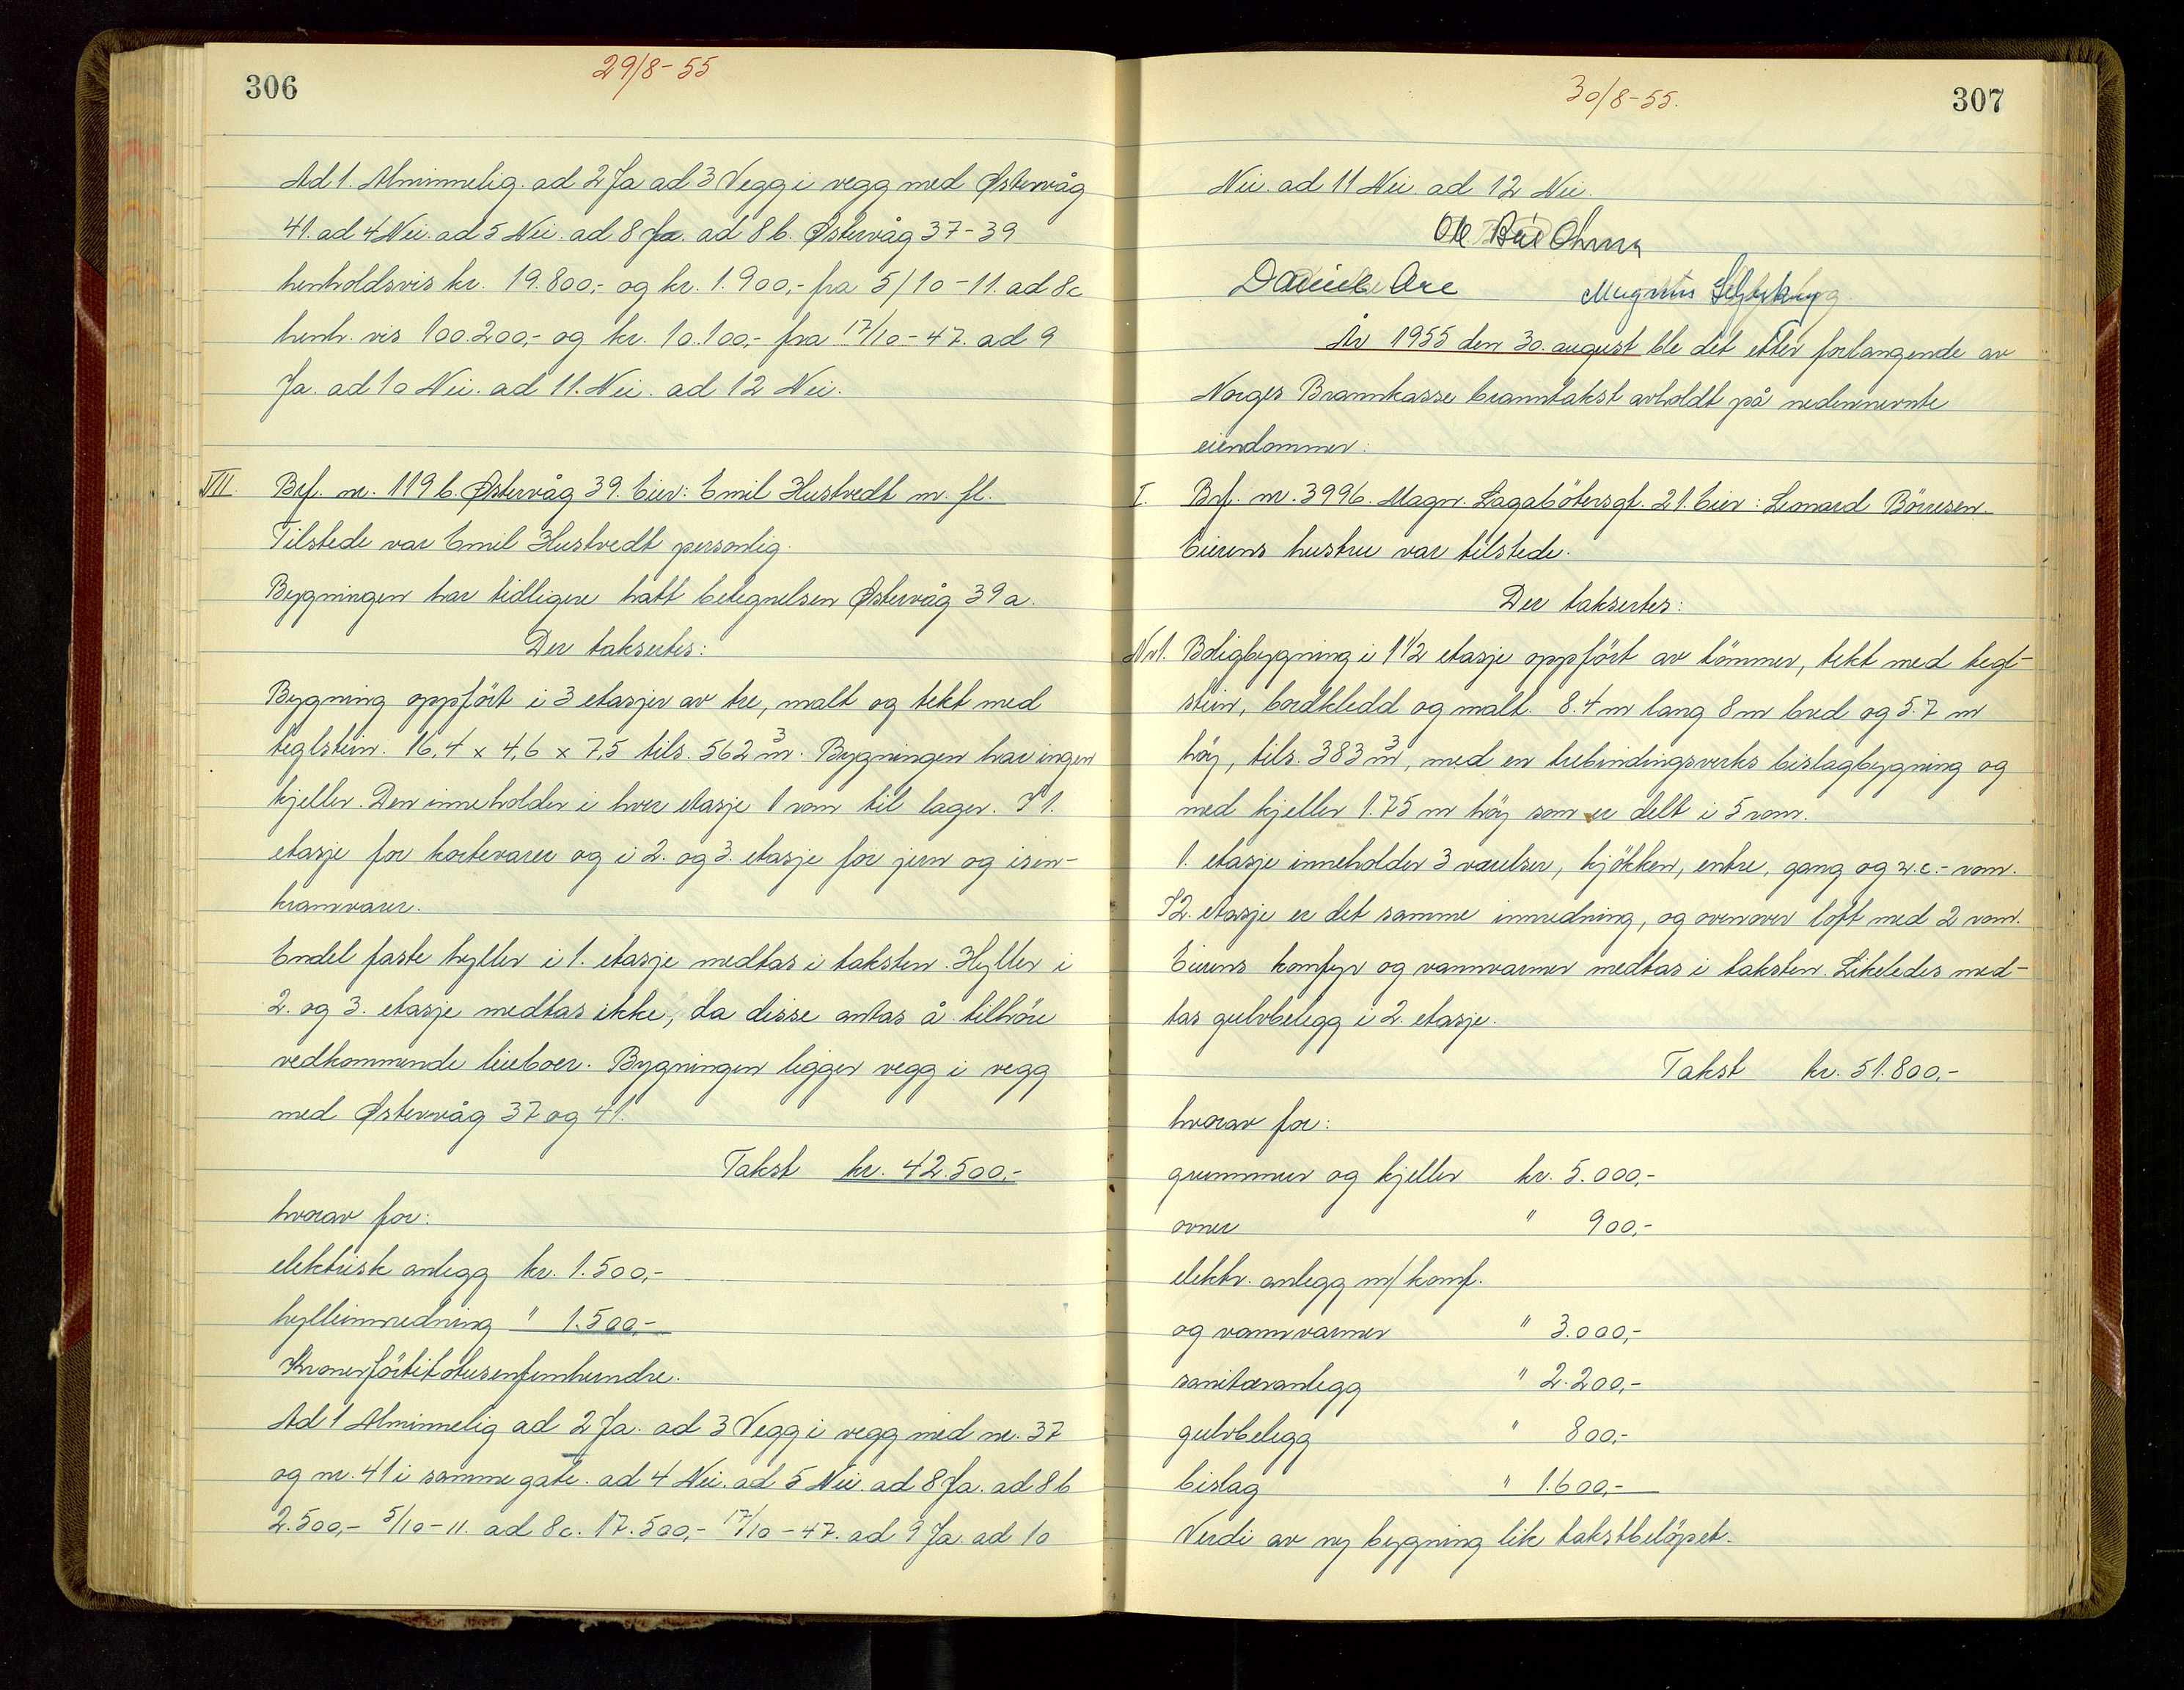 306
29/8-55
Ad 1. Alminnelig. ad 2 Ja ad 3 Vegg i vegg med Østervåg
41. ad 4 Nei. ad 5 Nei. ad 8 Ja. ad 8 b. Østervåg 37-39
henholdsvis kr. 19.800,- og kr. 1.900,- fra 5/10-11. ad 8c
henh. vis 100.200,- og kr. 10.100,- fra 17/10-47. ad 9
Ja. ad 10 Nei. ad 11. Nei. ad 12 Nei.
VII. Brf. nr. 119 b. Østervåg 39. Eier: Emil Hustvedt m. fl.
Tilstede var Emil Hustvedt personlig.
Bygningen har tidligere hatt betegnelsen Østervåg 39a.
Der taksertes:
Bygning oppført i 3 etasjer av tre, malt og tekt med
teglstein. 16,4 x 4,6 x 7,5 tils. 562 m³. Bygningen har ingen
kjeller. Den inneholder i hver etasje 1 rom til lager. I 1.
etasje for kortevarer og i 2. og 3. etasje for jern og isen-
kramvarer.
Endel faste hyller i 1. etasje medtas i taksten. Hyller i
2. og 3. etasje medtas ikke, da disse antas å tilhöre
vedkommende leieboer. Bygningen ligger vegg i vegg
med Østervåg 37 og 41.
Takst kr. 42.500,-
hvorav for:
elektrisk anlegg kr. 1.500,-
hylleinnredning " 1.500,-
Kronerförtitotusenfemhundre.
Ad 1 Alminnelig ad 2 Ja. ad 3 Vegg i vegg med nr. 37
og nr. 41 i samme gate. ad 4 Nei. ad 5 Nei. ad 8 Ja. ad 8 b
2.500,- 5/10-11. ad 8c. 17.500,- 17/10-47. ad 9 Ja. ad 10
307
30/8-55.
Nei. ad 11 Nei. ad 12 Nei.
Daniel Are Magnus
År 1955 den 30. august ble det etter forlangende av
Norges Brannkasse branntakst avholdt på nedennevnte
eiendommer:
I. Brf. nr. 3996. Magn. Lagabötersgt. 21. Eier: Leonard Börresen
Eierens hustru var tilstede.
Der taksertes:
Nr 1. Boligbygning i 1 1/2 etasje oppfört av tömmer, tekt med tegl-
stein, bordkledd og malt. 8.4 m lang 8 m bred og 5.7 m
höy, tils. 383 m³, med en trebindingsverks bislagbygning og
med kjeller 1.75 m höy som er delt i 5 rom.
1. etasje inneholder 3 værelser, kjökken, entre, gang og w.c.-rom.
I 2. etasje er det samme innredning, og ovenover loft med 2 rom.
Eierens komfyr og vannvarmer medtas i taksten. Likeledes med-
tas gulvbelegg i 2. etasje.
Takst kr. 51.800,-
hvorav for:
grunnmur og kjeller kr. 5.000,-
ovner " 900,-
elektr. anlegg m/ komf.
og vannvarmer " 3.000,-
sanitæranlegg " 2.200,-
gulvbelegg " 800,-
bislag " 1.600,-
Verdi av ny bygning lik takstbelöpet.